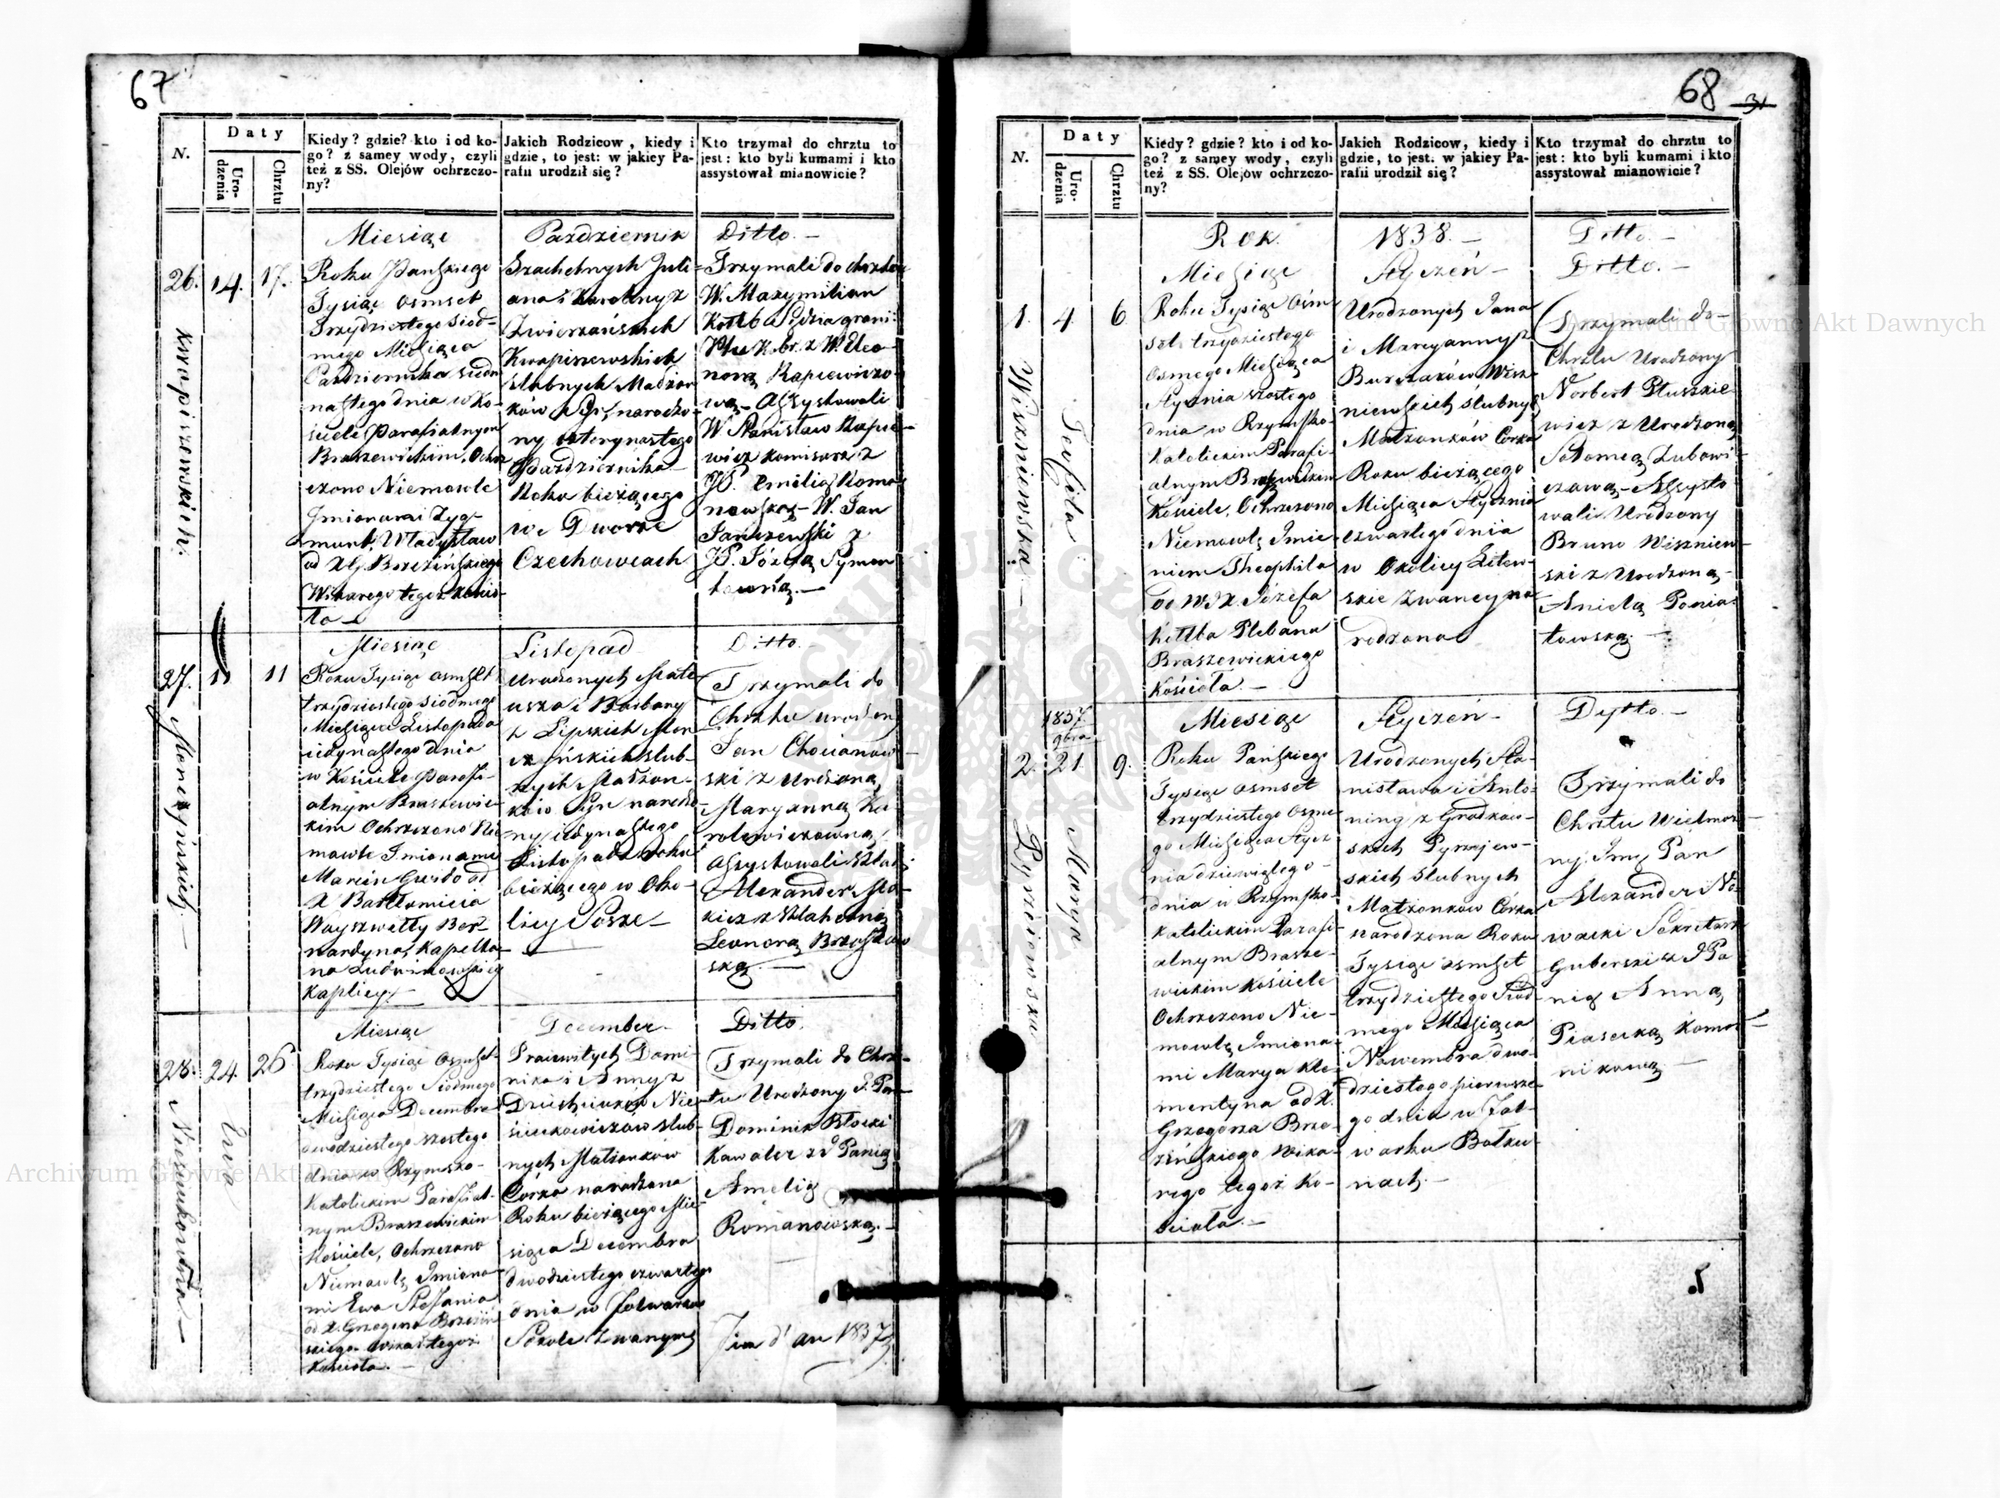 67
N.
Daty
Urodzenia
Chrztu
Kiedy? gdzie? kto i od ko-
go? z samey wody, czyli
też z SS. Olejów ochrzczo-
ny?
Jakich Rodzicow, kiedy i
gdzie, to jest: w jakiey Pa-
rafii urodził się?
Kto trzymał do chrztu to
jest: kto byli kumami i kto
assystował mianowicie?
Miesiąc
Pazdziernik
Ditto. —
26. 14. 17.
Kwapiszewskich.
Roku Pańskiego
Tysiąc osmset
Trzydziestego siod-
mego Miesiąca
Pazdziernika siedm
nastego dnia w Ko-
sciele Parafialnym
Braszewickim, Ochrz
czono Niemowle
Imionami Zyg-
munt, Władysław
od X. G. Brzezińskiego
Wikarego tegoż Kości-
ła —
Szachetnych Juli-
ana i Karoliny z
Zwierzańskich
Kwapiszewskich
slubnych Małżon
ków Syn, narodzo-
ny czternastego
Pazdziernika
Roku bieżącego
we Dworze
Czechowcach
Trzymali do chrztu
W. Maxymilian
Kottb Sędzia grani:
Ptu Kobr. z W. Eleo-
norą Kapiewiczo-
wą — Assystowali
W. Stanisław Kapie-
wicz komisarz z
JP. Emilią Roma-
nowską — W. Jan
Janiszewski z
JP. Józefą Szymon
towną. —
Miesiąc
Listopad
Ditto.
27. 11 11
Roku Tysiąc osmset
trzydziestego siodmego
Miesiąca Listopada
iedynastego dnia
w Kościele Parafi-
alnym Braszewic-
kim Ochrzczono Nie
mowle Imionami
Marcin Gwido od
X Bartłomieja
Wayszwiłły Ber
nardyna, Kapella-
na Ludwinowskiej
Kaplicy. —
Urodzonych Mate
usza i Barbary
z Lipskich Mon
czyńskich slub-
nych Małżon-
ków Syn narodzo-
ny iedynastego
Listopada Roku
bieżącego w Oko-
licy Sosze —
Trzymali do
Chrztu urodzony
Jan Chocianow-
ski z Urodzoną
Maryanną Ka-
rolewiczowną,
Assystowali Szlach:
Alexander Mo-
kicz z Szlachetną
Leonorą Brzozow
ską. —
Miesiąc
December —
Ditto.
28. 24. 26
Ewa
Roku Tysiąc Osmset
trzydziestego Siodmego
Miesiąca Decembra
dwodziestego szostego
dnia w Rzymsko-
Katolickim Parafial-
nym Braszewickim
Kościele, Ochrzczono
Niemowlę Imiona-
mi Ewa Stefania
od X. Grzegorza Brzeziń
skiego Wikar. tegoż
Kościoła. —
Pracowitych Domi-
nika i Anny z
slub-
nych Małżonków
Córka narodzona
Roku bieżącego Mie-
siąca Decembra
dwodziestego czwartego
dnia w folwarku
Sokole zwanym
Trzymali do Chrz-
tu Urodzony J. Pan
Dominik Błocki
Kawaler z Panią
Amelią
Romanowską. —
Fin d'an 1837
68
31
N.
Daty
Urodzenia
Chrztu
Kiedy? gdzie? kto i od ko-
go? z samey wody, czyli
też z SS. Olejów ochrzczo-
ny?
Jakich Rodzicow, kiedy i
gdzie, to jest: w jakiey Pa-
rafii urodził się?
Kto trzymał do chrztu to
jest: kto byli kumami i kto
assystował mianowicie?
Rok.
1838. —
Ditto. —
Miesiąc
Styczeń —
Ditto. —
1. 4. 6
Wiszniewska —
Teofila
Roku Tysiąc Ośm
set trzydziestego
Osmego Miesiąca
Stycznia szostego
dnia w Rzymsko-
Katolickim Parafi-
alnym Braszewickim
Kościele, Ochrzczono
Niemowlę Imie-
niem Theophila
od W. X. Józefa
Kottba Plebana
Braszewickiego
Kościoła. —
Urodzonych Jana
i Maryanny z
Burczaków Wisz-
niewskich slubnych
Małżonków Córka
Roku bieżącego
Miesiąca Stycznia
czwartego dnia
w Okolicy Litew-
skie zwaney na
rodzona
Trzymali do
Chrztu Urodzony
Norbert Ptuszkie
wicz z Urodzoną
Salomeą Zubowi-
czową — Assysto
wali Urodzony
Bruno Wiszniew-
ski z Urodzoną
Anielą Ponia-
towską. —
Miesiąc
Styczeń —
Dytto. —
1837
9bra
2. 21. 9.
Marya
Roku Pańskiego
Tysiąc osmset
trzydziestego osme-
go Miesiąca Stycz
nia dziewiątego
dnia w Rzymsko-
Katolickim Parafi-
alnym Brasze-
wickim Kościele
Ochrzczono Nie-
mowlę Imiona-
mi Marya Kle-
mentyna od X.
Grzegorza Brze-
zińskiego Wika-
rego tegoż Ko-
ścioła. —
Urodzonych Sta-
nisława i Anto-
niny z Grodzow-
skich
skich slubnych
Małżonków Córka
narodzona Roku
Tysiąc osmset
trzydziestego Siód
mego Miesiąca
Nowembra dwó-
dziestego pierwsze-
go dnia w Fol-
warku Bołku-
nach. —
Trzymali do
Chrztu Wielmoż-
ny Imć Pan
Alexander No-
wacki Sekretarz
Guberski z JPa
nią Anną
Piasecką Komor-
nikową —
Archiwum Główne Akt Dawnych
Archiwum Główne Akt Dawnych